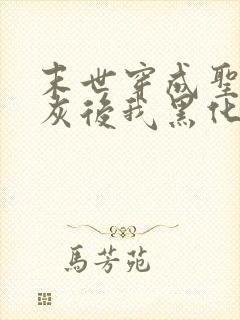 末世穿成聖
灰後我黑化
馬芳苑